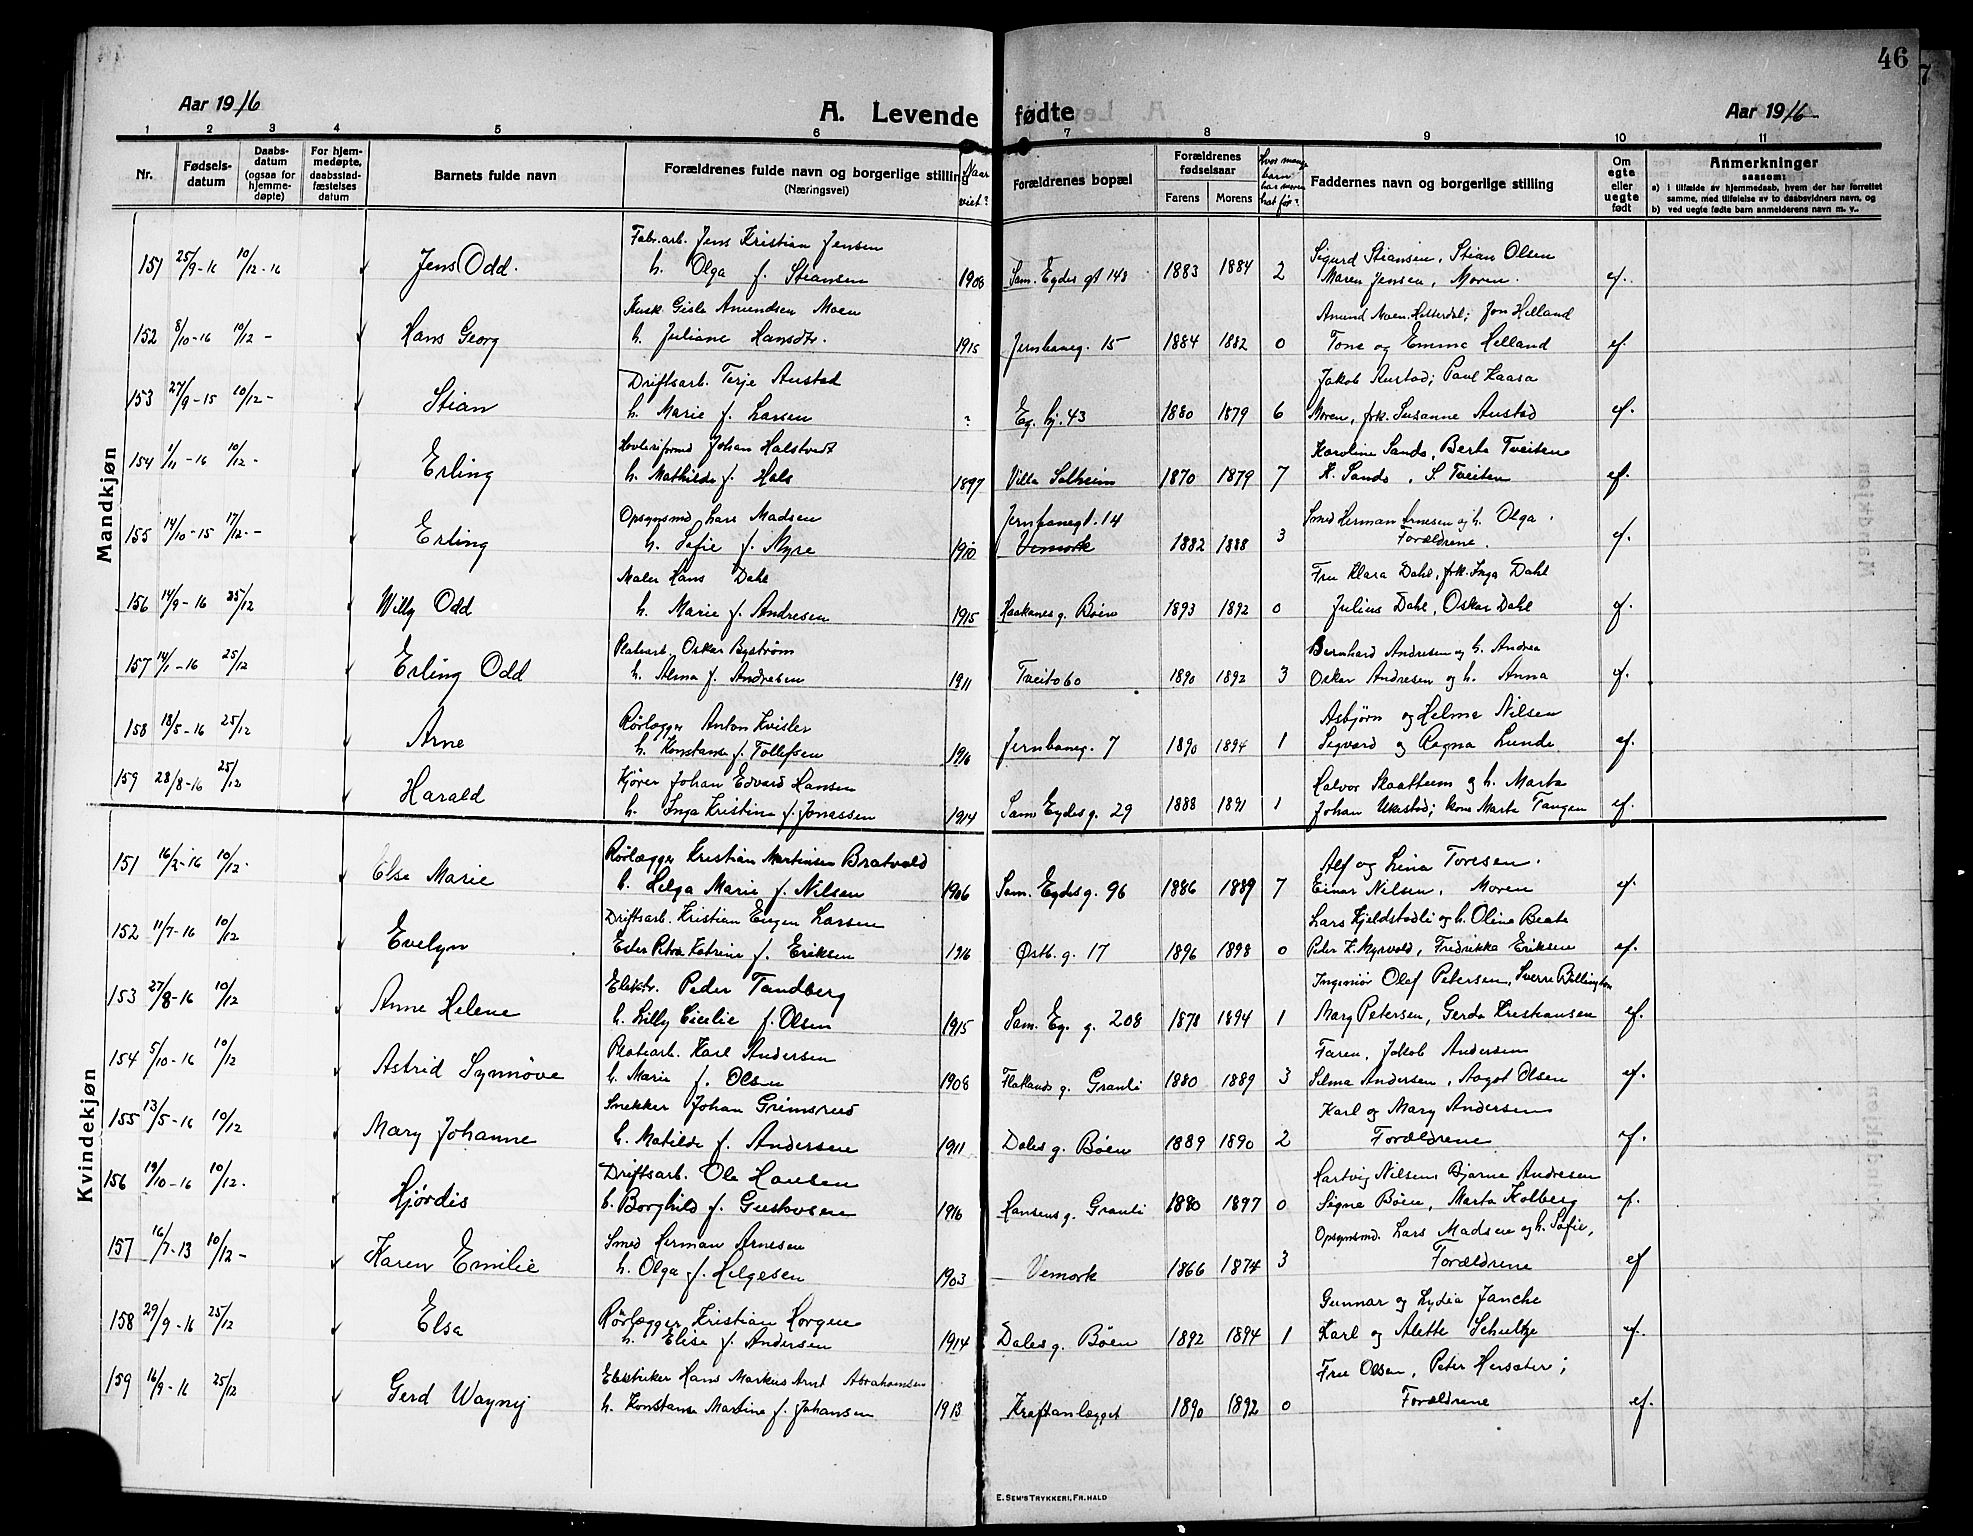 46
7
Aar 1916
A. Levende fødte
Aar 1916
1 2 3 4 5 6 7 8 9 10 11
Nr.
Fødsels-datum
Daabs-datum (ogsaa for hjemme-døpte)
For hjem-medøpte, daabsstad-fæstelses datum
Barnets fulde navn
Forældrenes fulde navn og borgerlige stilling (Næringsvei)
Naar viet?
Forældrenes bopæl
Forældrenes fødselsaar
Farens Morens
Hvor mange barn har moren hat før?
Faddernes navn og borgerlige stilling
Om egte eller uegte født
Anmerkninger
saasom:
a) i tilfælde av hjemmedaab, hvem der har forrettet samme, med tilføielse av to daabsvidners navn, og
b) ved uegte fødte barn anmelderens navn m. v..
Mandkjøn
Fabr.arb. Jens Kristian Jensen Sigurd Stiansen, Stian Olsen
151 25/9-16 10/12-16 Jens Odd. h. Olga f. Stiansen 1908 Sam. Eydes gt 143 1883 1884 2 Maren Jensen, Moren. ef.
Kusk Gisle Amundsen Moen Amund Moen. Hitterdal; Jon Helland
152 8/10-16 10/12 - Hans Georg h. Juliane Hansdtr. 1915 Jernbaneg. 15 1884 1882 0 Tone og Emma Helland ef.
Driftsarb. Terje Austad Jakob Austad; Paul Haasa
153 27/9-15 10/12 - Stian h. Marie f. Larsen ? Eg. hj. 43 1880 1879 6 Moren, frk. Susanne Austad ef.
Johan Halstvedt Karoline Sando, Berta Tveiten
154 1/11-16 10/12 - Erling h. Mathilde f. Hals 1897 Villa Solheim 1870 1879 7 K. Sando, S. Tveiten ef.
Opsynsmd Lars Madsen Jernbanegt. 14 Smed Herman Arnesen og h. Olga.
155 14/10-15 17/12 - Erling h. Sofie f. Myre 1910 Vemork 1882 1888 3 Forældrene. ef.
Maler Hans Dahl Fru Klara Dahl, frk. Inga Dahl
156 14/9-16 25/12 Willy Odd h. Marie f. Andresen 1915 Haakanes g. Bøen 1893 1892 0 Julius Dahl, Oskar Dahl ef.
Platearb. Oskar Bystrøm Bernhard Andresen og h. Andrea
157 14/1-16 25/12 Erling Odd h. Alma f. Andresen 1911 Tveito 60 1890 1892 3 Oskar Andresen og h. Anna ef.
Rørlægger Anton Kvisler Asbjørn og Helma Nilsen
158 13/5-16 25/12 Arne h. Konstanse f. Tollefsen 1916 Jernbaneg. 7 1890 1894 1 Sigvard og Ragna Lunde ef.
Kjører Johan Edvard Hansen Halvor Skaatheim og h. Marta
159 28/8-16 25/12 Harald h. Inga Kristine f. Jonassen 1914 Sam Eydes g. 29 1888 1891 1 Johan Ukestad; kone Marta Tangen ef.
Kvindekjøn
Rørlægger Kristian Martinsen Bratvold Alf og Lina Toresen.
151 16/2-16 10/12. Else Marie h. Helga Marie f. Nilsen 1906 Sam. Eydes g. 96 1886 1889 7 Einar Nilsen, Moren ef.
Driftsarb. Kristian Eugen Larsen Lars Kjeldstadli og h. Oline Beate
152 11/7-16 10/12 Evelyn Ester Petra Katrine f. Eriksen 1916 Østb. g. 17 1896 1898 0 Peter K. Myrvold, Fredrikke Eriksen ef.
Elektr. Peder Tandberg Ingeniør Olef Petersen, Sverre Billington
153 27/8-16 10/12 Anne Helene h. Lilly Cecilie f. Olsen 1915 Sam. Eg. g. 208 1878 1894 1 Mary Petersen, Gerda Kristiansen ef.
Platearb. Karl Andersen Faren, Jakob Andersen
154 5/10-16 10/12 Astrid Synnøve h. Marie f. Olsen 1908 Flakands g. Granli 1880 1889 3 Selma Andersen, Aagot Olsen ef.
Snekker Johan Grimsrud Karl og Mary Andersen
155 13/5-16 10/12 Mary Johanne h. Matilde f. Andersen 1911 Dales g. Bøen 1889 1890 2 Forældrene ef.
Driftsarb. Ole Hansen Hartvig Nilsen Bjarne Andresen
156 19/10-16 10/12. Hjørdis h. Borghild f. Gustavsen 1916 Hansens g. Granli 1880 1897 0 Signe Bøen, Marta Kolberg ef.
Smed Herman Arnesen Opsynsmd. Lars Madsen og h. Sofie,
157 16/7-13 10/12 - Karen Emilie h. Olga f. Helgesen 1903 Vemork 1866 1874 3 Forældrene ef
Rørlægger Kristian Horgen Gunnar og Lydia Janche
158 29/9-16 25/12 Elsa h. Elise f. Andersen 1914 Dales g. Bøen 1892 1894 1 Karl og Alette Schultze ef.
Elektriker Hans Markus Arnt Abrahamsen Fru Olsen, Peter Hersæter;
159 16/9-16 25/12 Gerd Wayny h. Konstanse Martine f. Johansen 1913 Kraftanlægget 1890 1892 0 Forældrene ef.
E. SEM'S TRYKKERI, FR.HALD